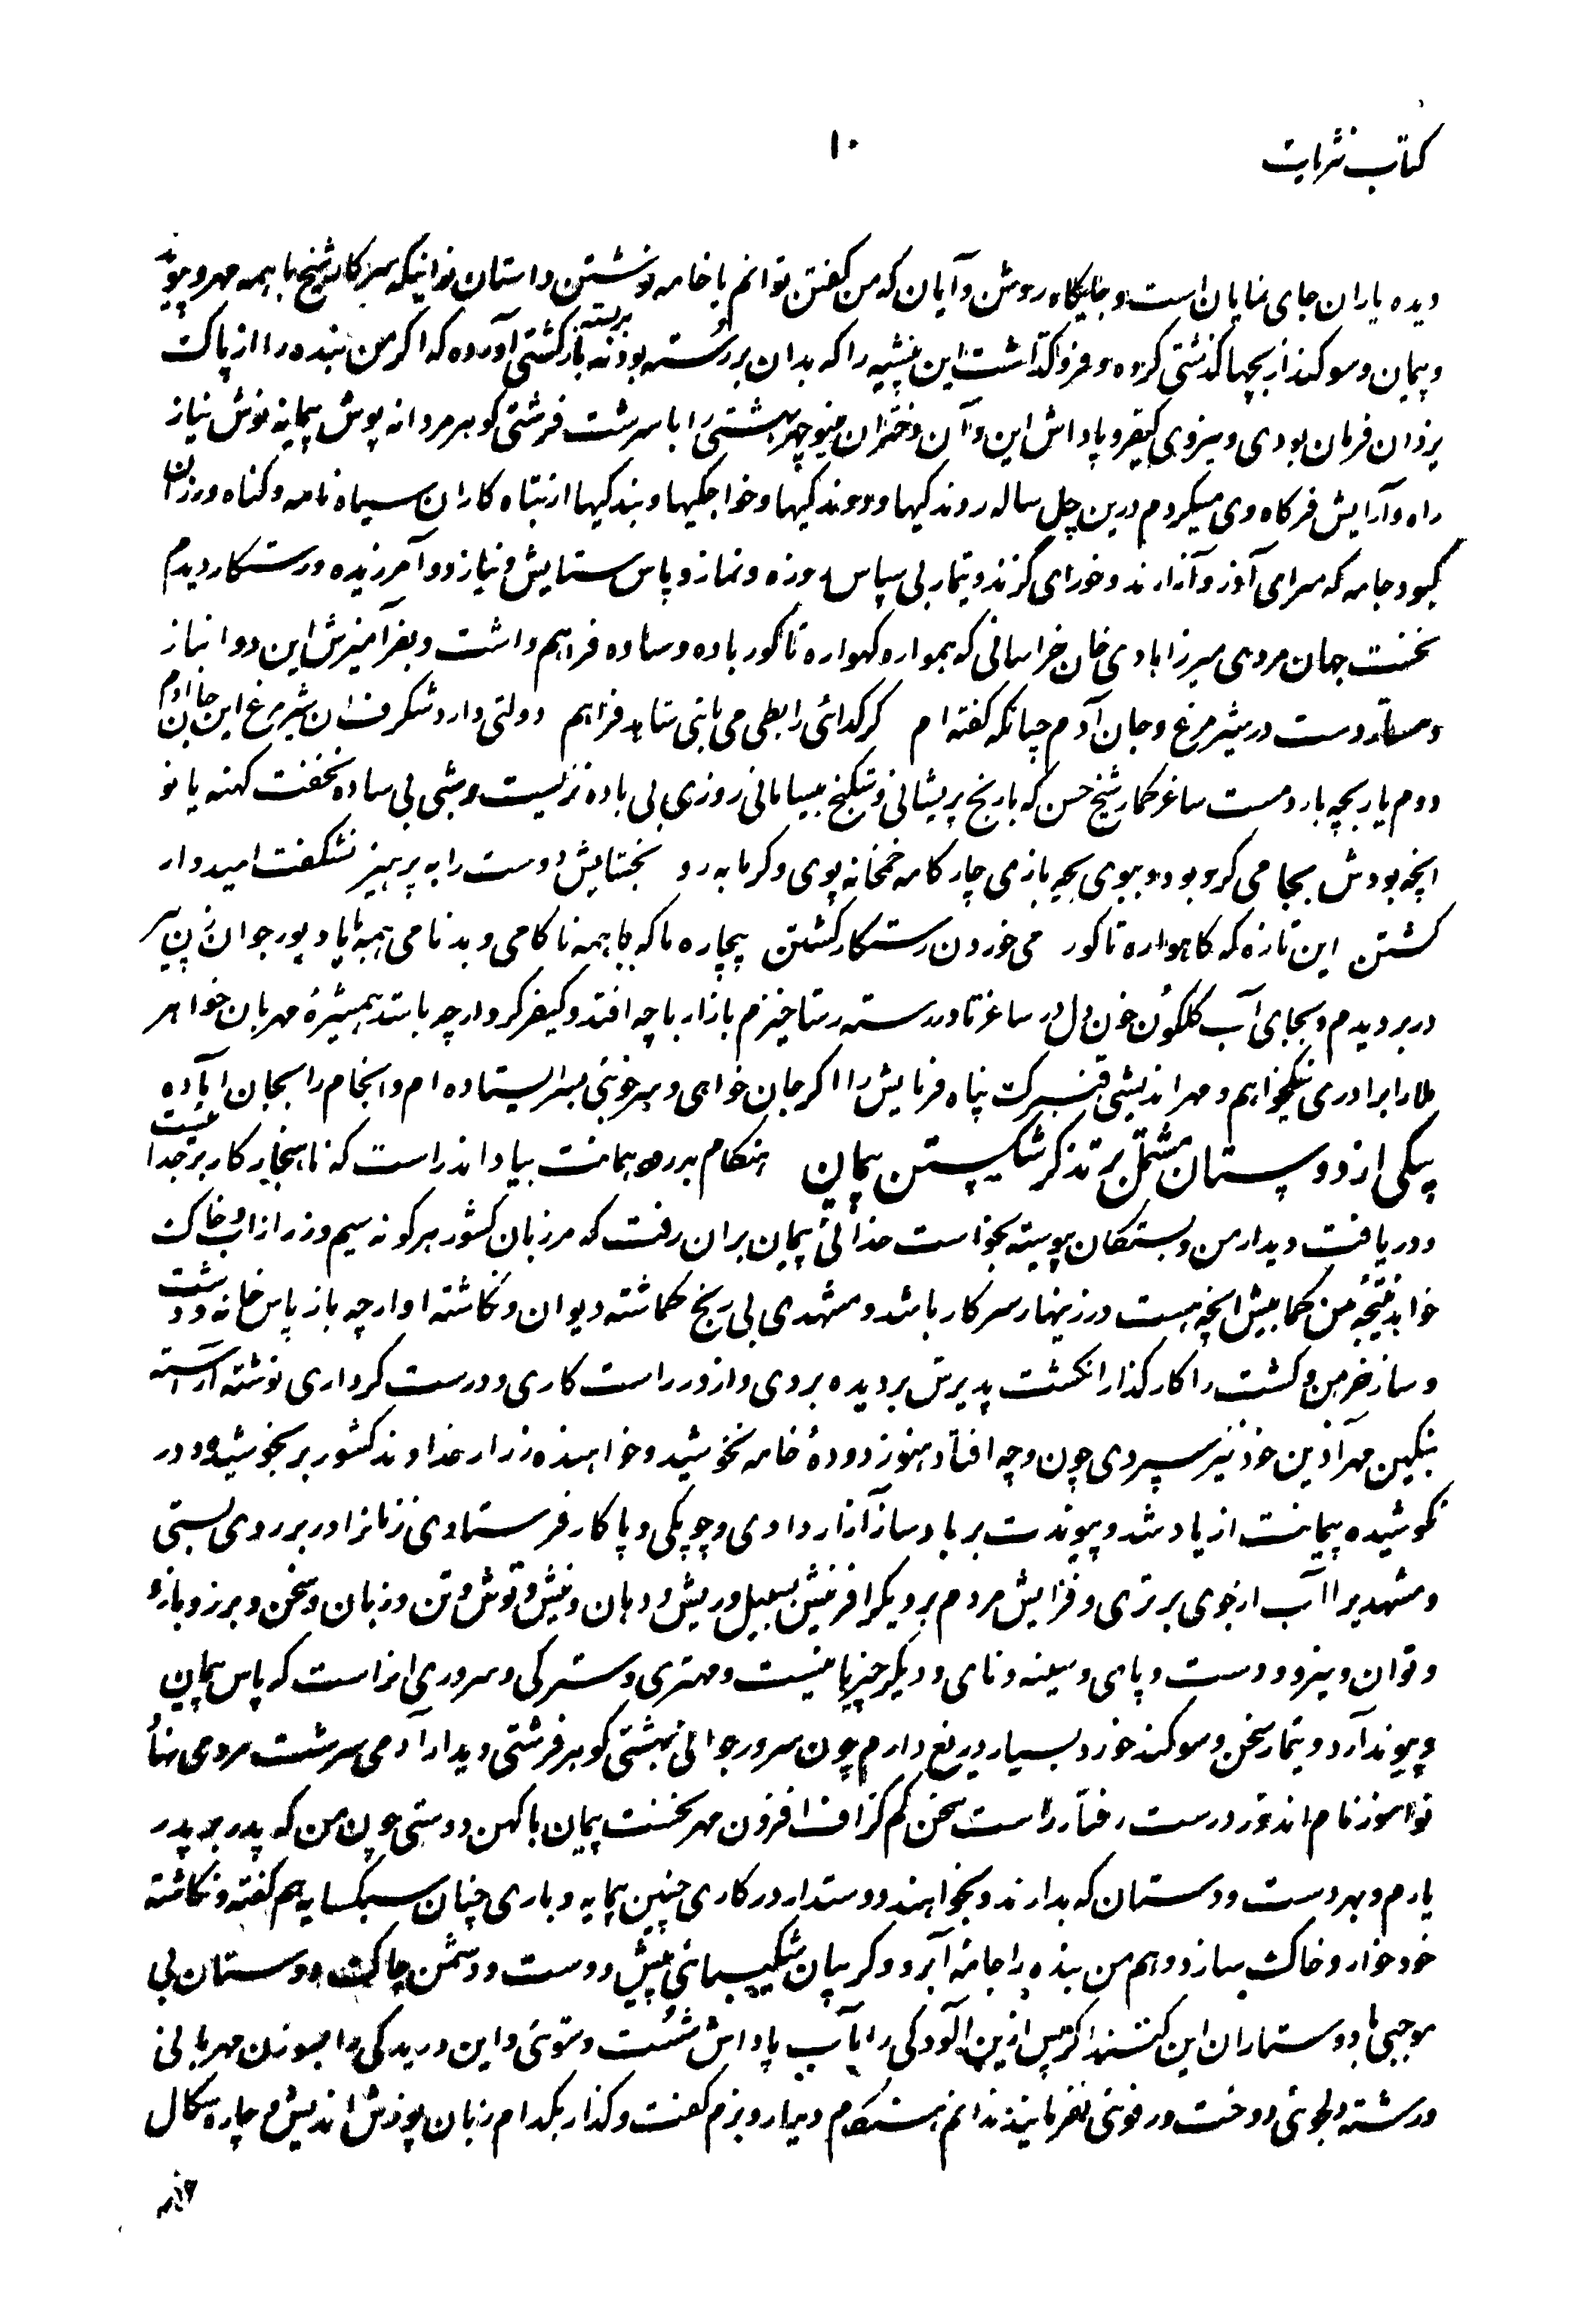 کتاب نثریات
۱۰
دیده یاران جای نمایان است و جایگاه روشن و آیان که من گفتن توانم یا خامه نوشتن داستان تواینکه سرکار شیخ با همه مهر و پیوند
و پیمان و سوگند از بچها گذشتی کرده و فروگذاشت این پیشه را که بدان بر رسته بود نه بر بسته بازگشتی آورده که اگر من بنده را از پاک
یزدان فرمان بودی و نیروی کیفر و پاداش این و آن دختران مینو چهر بهشتی را با سرشت فرشتی گوهر مردانه پوش پیمانه نوش نیاز
راه و آرایش فرگاه وی میکردم درین چل ساله روندگیها و دوندگیها و خواجگیها و بندگیها از تباه کاران سیاه نامه و گناه ورزان
کبود جامه که سرای آذر و آزارند و خورای گزند و تیمار بی سپاس روزه و نماز و پاس ستایش و نیاز دو آمرزیده و رستگار دیدم
نخست جهان مردمی میرزا هادی خان خراسانی که همواره گهواره تا گور باده و ساده فراهم داشت و بفر آمیزش این دو انباز
و دمساز دست در شیر مرغ و جان آدم چنانکه گفته ام گر گدائی را بطی می با بتی شاهد فراهم دولتی دارد شگرف آن شیر مرغ این جان آدم
دوم یار بچه باز دمست ساغر گمار شیخ حسن که با رنج پریشانی و شکنج بیسامانی روزی بی باده نزیست و شبی بی ساده نخفت کهنه یا نو
انچه بودش بجا می گرو بود و ببوی بچه بازی چار گامه خمخانه پوی و گرمابه رو بخشایش دوست را به پرهیز نشگفت امیدوار
گشتن این تازه که گاهواره تا گور می خوردن رستگار گشتن بیچاره ما که با همه ناکامی و بدنامی همه بیاد پور جوان زن پیر
در بر دیدم و بجای آب گلگون خون دل در ساغر تا در رسته رستاخیزم بازار با چه افتد و کیفر کردار چه باشد همشیره مهربان خواهر
ما را برادری نیکخواهیم و مهر اندیشی قنبرک پناه فرمایش را اگر جان خواهی و سر جوئی بسر ایستاده ام و انجام را بجان آماده
بیکی از دوستان مشتمل بر تذکر شکستن پیمان هنگام بدرود همانت بیاد اندر است که ناهنجار کار بر خدا نیست
و دریافت دیدار من و بستگان پیوسته بخواست خدائی پیمان بران رفت که مرزبان کشور هر گونه سیم و زر از آب و خاک
خواند من کمابیش انچه هست در زینهار سرکار باشد و مشهدی بی رنج گماشته دیوان و نگاشته اوارچه باز پاس خانه و دشت
و ساز خرمن و کشت را کارگذار انگشت پذیرش بر دیده بردی و از در راست کاری و درست کرداری نوشته آراسته
بنگین مهر آذین خود نیز سپردی چون و چه افتاد هنوز دوده خامه نخوشید و خواهنده زر از خداوند کشور بر نجوشیده و در
نکوشیده پیمانت از یاد شد و پیوندت بر باد ساز آزار دادی و چوبکی و پاکار فرستادی زنانرا در بر روی بستی
و مشهدیرا آب از جوی برتری و فزایش مردم بر دیگر آفرینش سبیل و ریش و دهان و نیش و توش و تن و زبان و سخن و برز و بازو
و توان و نیرو و دست و پای و سینه و نای و دیگر چیزها نیست و مهتری و سترگی و سروری انراست که پاس پیمان
و پیوند آرد و تیمار سخن و سوگند خورد بسیار دریغ دارم چون سرور جوانی بهشتی گوهر فرشتی دیدار آدمی سرشت مردمی نهاد
نوآموز نام اندوز درست رفتار راست سخن کم گزاف افزون مهر نخست پیمان با کهن دوستی چون من که پدر بر پدر
یارم و بهر دست دوستان که بدارند و بخواهند دوستدار در کاری چنین بیمایه و باری چنان سبکسایه هم گفته و نگاشته
خود خوار و خاک سازد و هم من بنده را جامه آبرو و گریبان شکیبائی پیش دوست و دشمن چاک دوستان بی
موجبی با دوستاران این کنند اگر پس ازین آلودگی را بآب پاداش شست و شوئی و این دریدگی را بسوزن مهربانی
و رشته دلجوئی دوخت و رفوئی نفرمایند ندانم هنگام دیدار و بزم گفت و گذار بکدام زبان پوزش اندیش و چاره سگال